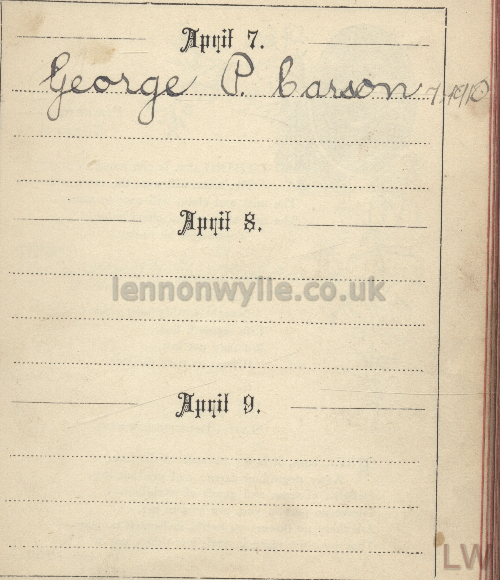 April 7.
George P. Carson 7. 1910
April 8.
lennonwylie.co.uk
April 9.
LW